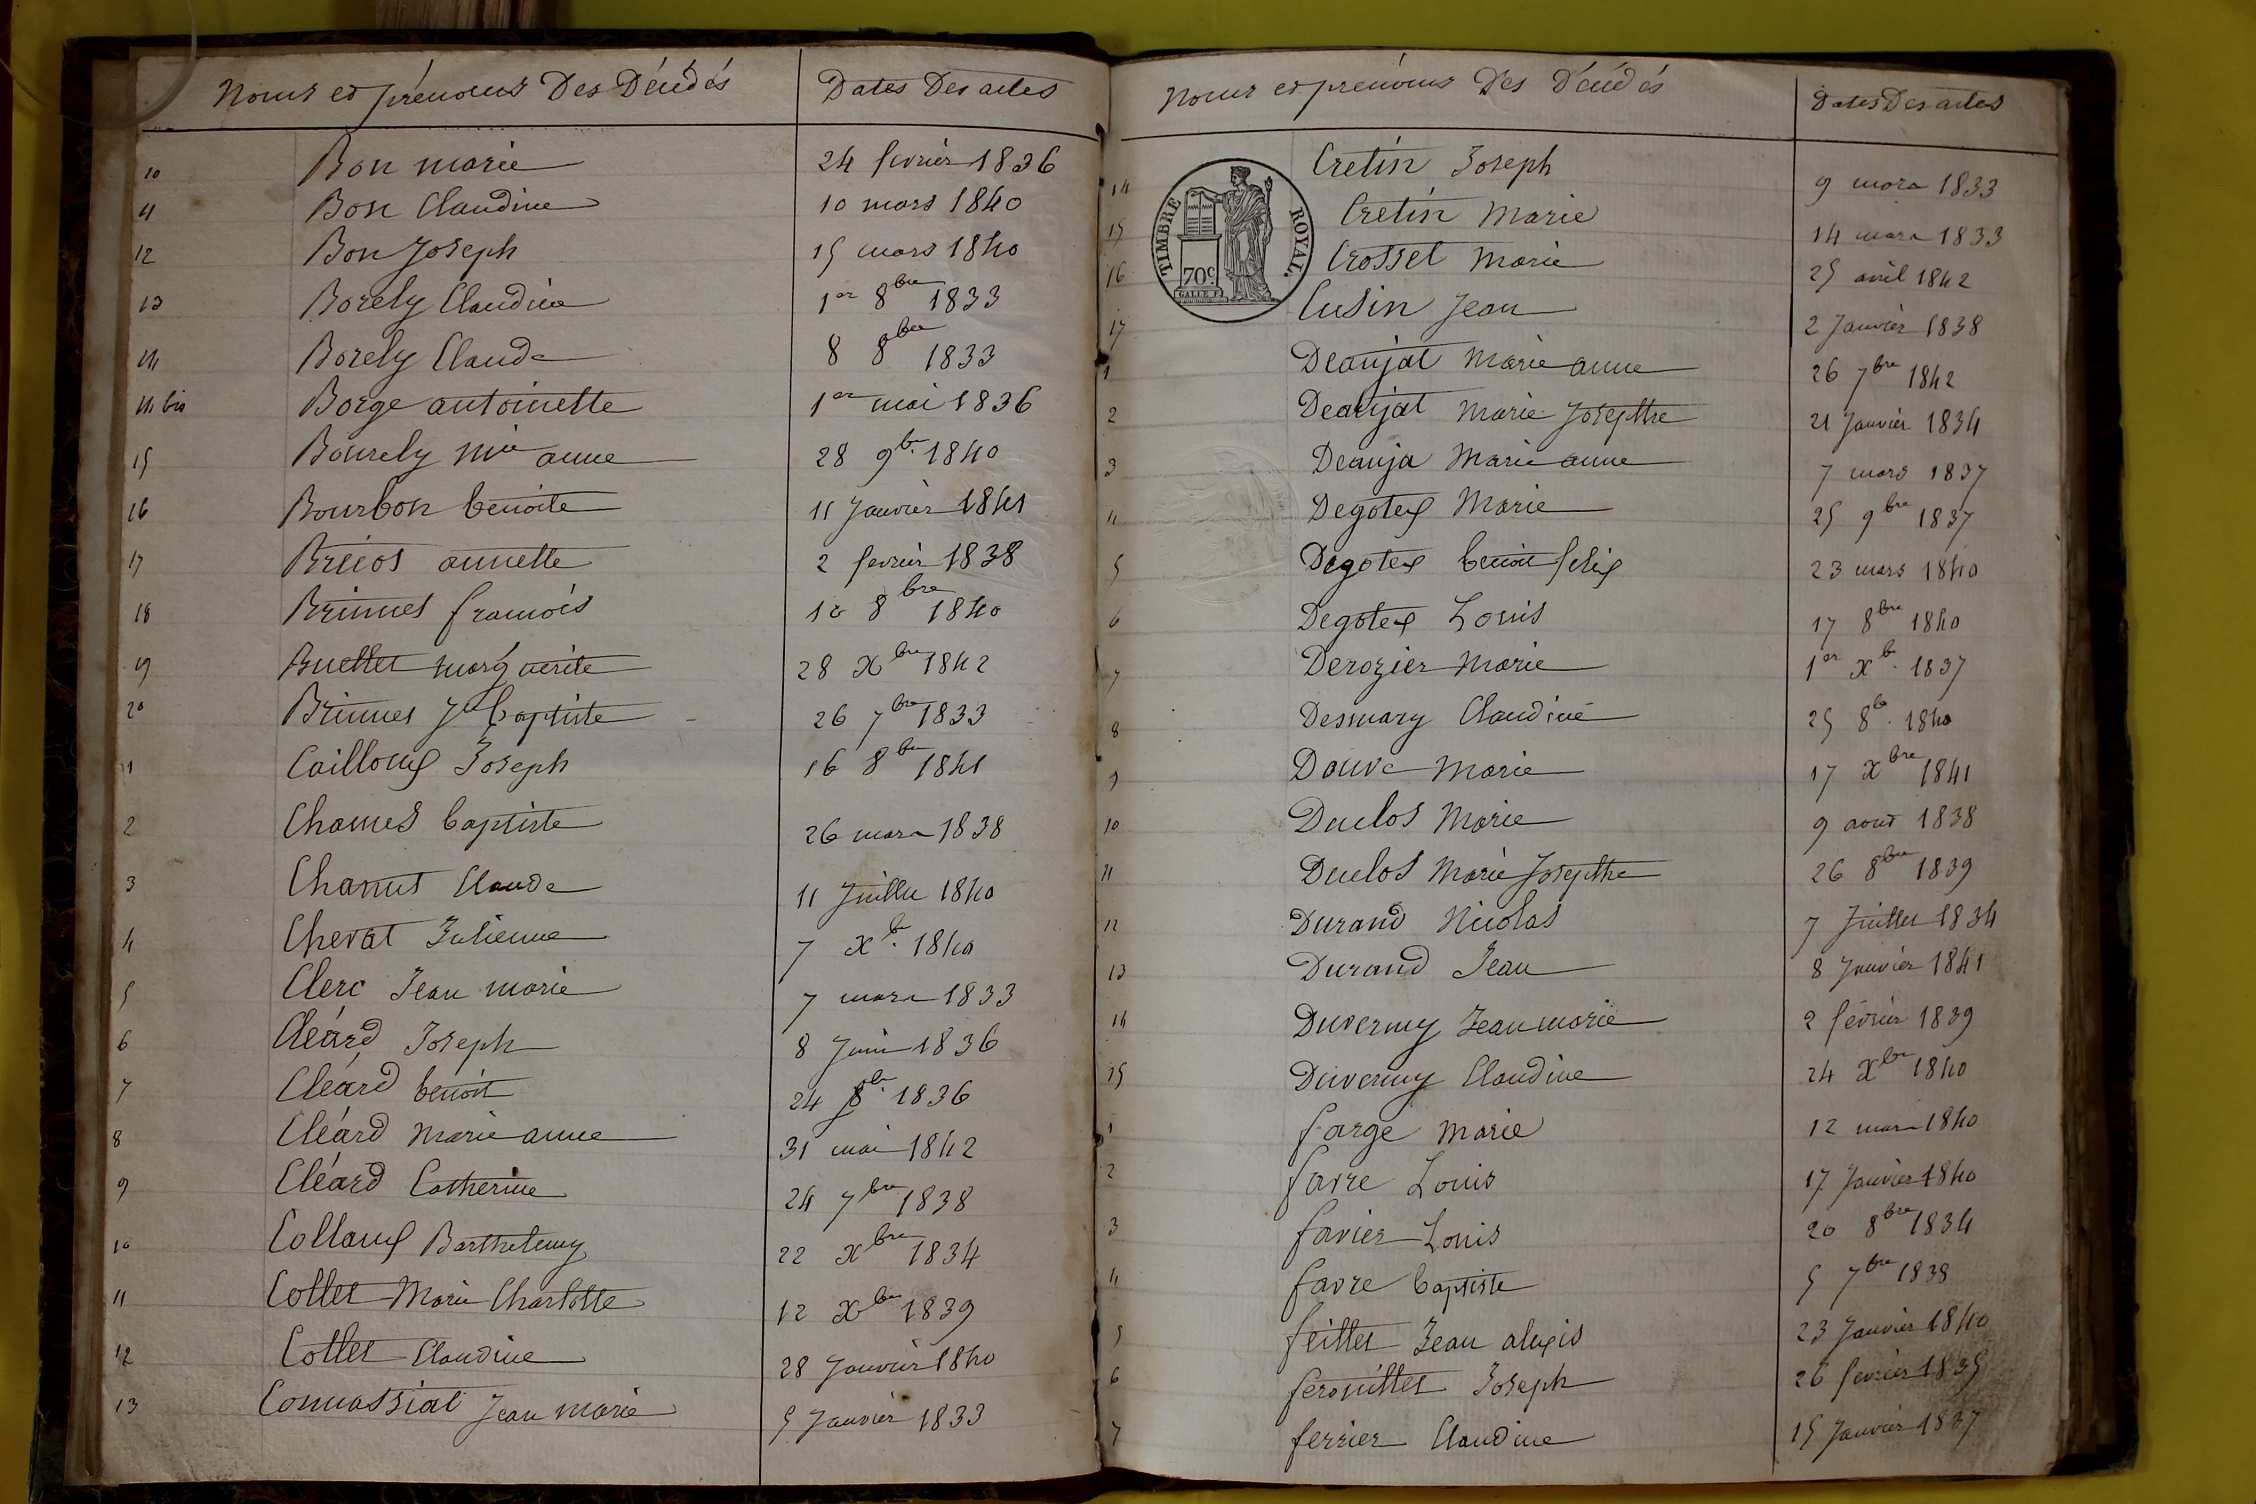 Noms et prénoms Des Décédés Dates Des actes
10 Bon marie 24 fevrier 1836
11 Bon Claudine 10 mars 1840
12 Bon Joseph 15 mars 1840
13 Borely Claudine 1er 8bre 1833
14 Borely Claude 8 8bre 1833
14 bis Borge antoinette 1er mai 1836
15 Bourely Mie anne 28 9b. 1840
16 Bourbon benoite 11 Janvier 1841
17 annette 2 fevrier 1838
18 Brunet francois 10 8bre 1840
19 Buellet marguerite 28 Xbre 1842
20 Jn baptiste 26 7bre 1833
1 Cailloux Joseph 16 8bre 1841
2 baptiste 26 mars 1838
3 Chanut Claude 11 Juillet 1840
4 Chevat Julienne 7 Xb. 1840
5 Clerc Jean marie 7 mars 1833
6 Cléard Joseph 8 Juin 1836
7 Cléard benoit 24 1836
8 Cléard marie anne 31 mai 1842
9 Cléard Catherine 24 7bre 1838
10 Collaux Barthelemy 22 Xbre 1834
11 Collet Marie Charlotte 12 Xbre 1839
12 Collet Claudine 28 Janvier 1840
13 Connassiat Jean marie 5 Janvier 1833
Noms et prénoms Des Décédés Dates Des actes
TIMBRE ROYAL.
70c.
14 Cretin Joseph 9 mars 1833
15 Cretin Marie 14 mars 1833
16 Crosset Marie 25 avril 1842
17 Cusin Jean 2 Janvier 1838
1 Deaujat Marie anne 26 7bre 1842
2 Deaujat Marie Josepthe 21 Janvier 1834
3 Deauja Marie anne 7 mars 1837
4 Degotex Marie 25 9bre 1837
5 Degotex benoit felix 23 mars 1840
6 Degotex Louis 17 8bre 1840
7 Derozier Marie 1er Xb. 1837
8 Desmary Claudine 25 8b. 1840
9 Douve Marie 17 Xbre 1841
10 Duclos Marie 9 aout 1838
11 Duclos Marie Josepthe 26 8bre 1839
12 Durand Nicolas 7 Juillet 1834
13 Durand Jean 8 Janvier 1841
14 Duverny Jean marie 2 février 1839
15 Duverny Claudine 24 Xbre 1840
1 farge Marie 12 mars 1840
2 favre Louis 17 Janvier 1840
3 favier Louis 20 8bre 1834
4 favre baptiste 5 7bre 1838
5 feillet Jean alexis 23 Janvier 1840
6 ferouillet Joseph 26 fevrier 1835
7 ferrier Claudine 15 Janvier 1837